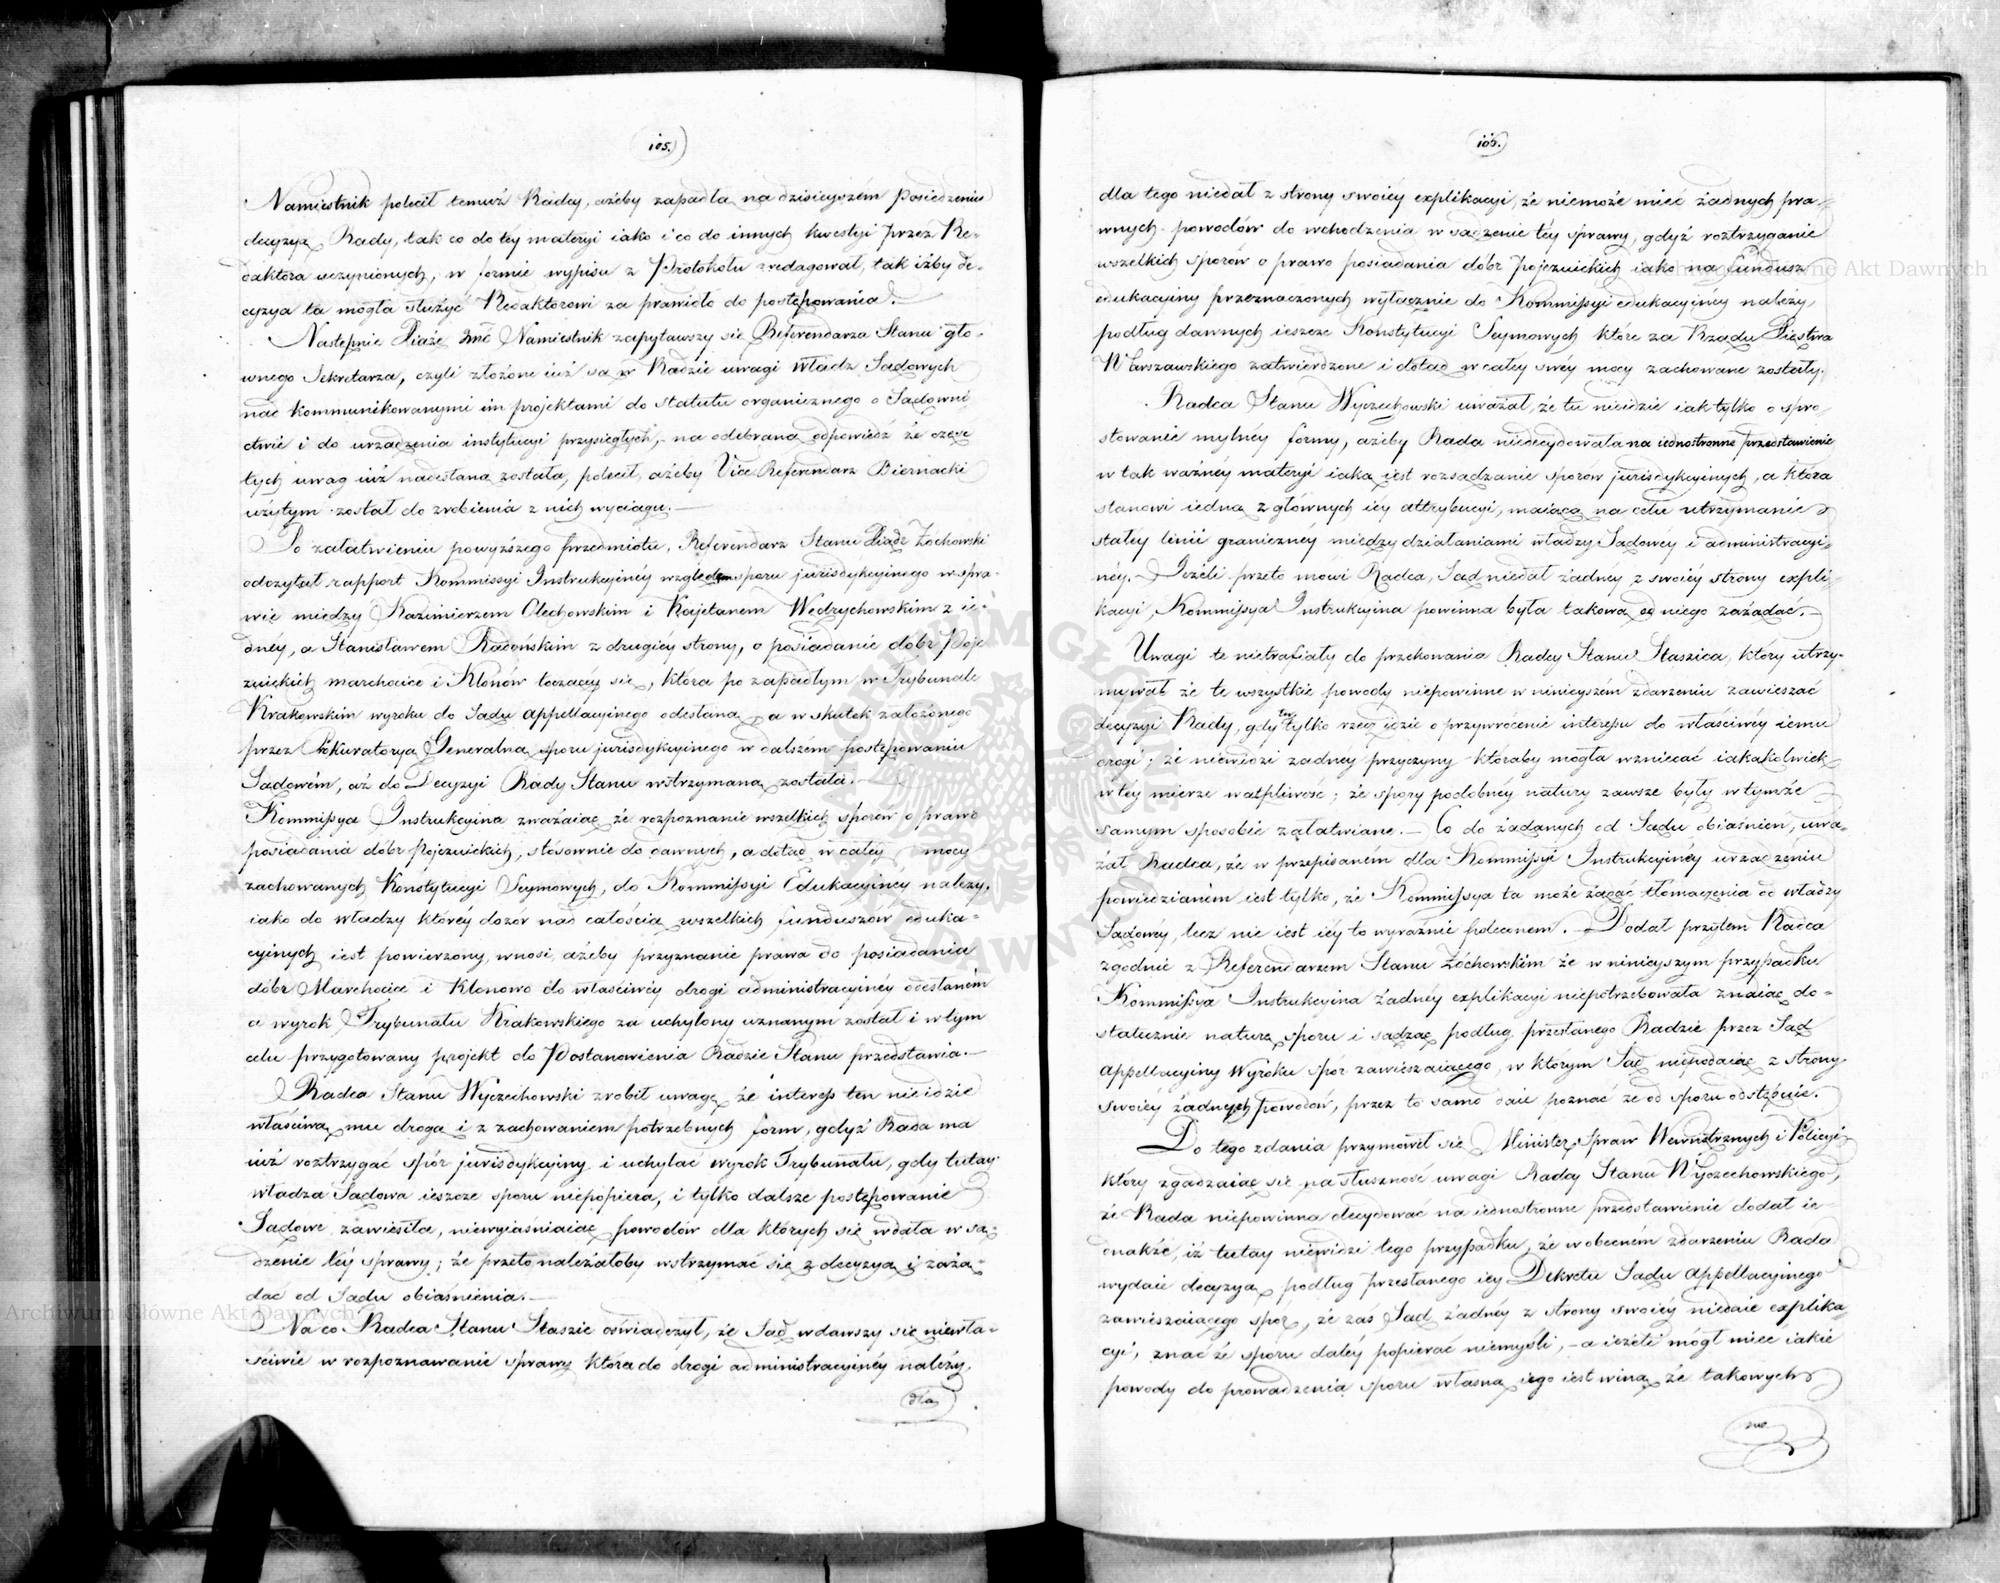 105.
Namiestnik polecił temuż Radcy, ażeby zapadła na dzisieyszém Posiedzeniu
decyzya Rady, tak co do téy materyi iako i co do innych kwestyi przez Re-
daktora uczynionych, w formie wypisu z Protokołu zredagował, tak iżby de-
cyzya ta mogła służyć Redaktorowi za prawidło do postępowania.—
Następnie Xiąże Jmć Namiestnik zapytawszy się Referendarza Stanu Głó-
wnego Sekretarza, czyli złożone iuż są w Radzie uwagi Władz Sądowych
nad kommunikowanymi im projektami do statutu organicznego o Sądowni
ctwie i do urządzenia instytucyi przysięgłych, na odebraną odpowiedź że część
tych uwag iuż nadesłana została, polecił, ażeby Vice Referendarz Biernacki
użytym został do zrobienia z nich wyciągu.—
Po załatwieniu powyższego przedmiotu, Referendarz Stanu Xiądz Żochowski
odczytał rapport Kommissyi Instrukcyinéy względem sporu jurisdykcyjnego w spra-
wie między Kazimierzem Olechowskim i Kajetanem Wędrychowskim z ie-
dnéy, a Stanisławem Radońskim z drugiéy strony, o posiadanie dóbr Poje-
zuickich Marchocice i Klonów toczącéy się, która po zapadłym w Trybunale
Krakowskim wyroku do Sądu Appellacyinego odesłana, a w skutek założonego
przez Prokuratoryą Generalną sporu jurisdykcyjnego w dalszém postępowaniu
Sądowém, aż do Decyzyi Rady Stanu wstrzymaną została.—
Kommissya Instrukcyina zważaiąc że rozpoznanie wszelkich sporów o prawo
posiadania dóbr Pojezuickich, stósownie do dawnych, a dotąd w całéy mocy
zachowanych Konstytucyi Seymowych, do Kommissyi Edukacyinéy należy,
iako do władzy któréy dozór nad całością wszelkich funduszów eduka-
cyinych iest powierzony, wnosi, ażeby przyznanie prawa do posiadania
dóbr Marchocice i Klonowo do właściwéy drogi administracyinéy odesłaném
a wyrok Trybunału Krakowskiego za uchylony uznanym został i w tym
celu przygotowany projekt do Postanowienia Radzie Stanu przedstawia.—
Radca Stanu Wyczechowski zrobił uwagę że interess ten nieidzie
właściwą mu drogą i z zachowaniem potrzebnych form, gdyż Rada ma
iuż roztrzygać spór jurisdykcyjny i uchylać wyrok Trybunału, gdy tutay
władza Sądowa ieszcze sporu niepopiera, i tylko dalsze postępowanie
Sądowe zawiesiła, niewyiaśniaiąc powodów dla których się wdała w są-
dzenie téy sprawy; że przeto należałoby wstrzymać się z decyzyą i zażą-
dać od Sądu obiaśnienia.—
Na co Radca Stanu Staszic oświadczył, że Sąd wdawszy się niewła-
ściwie w rozpoznawanie sprawy która do drogi administracyinéy należy,
dla
106.
dla tego niedał z strony swoiéy explikacyi, że niemoże mieć żadnych pra-
wnych powodów do wchodzenia w sądzenie téy sprawy, gdyż roztrzyganie
wszelkich sporów o prawo posiadania dóbr Pojezuickich iako na fundusz
edukacyiny przeznaczonych wyłącznie do Kommissyi edukacyinéy należy,
podług dawnych ieszcze Konstytucyi Seymowych które za Rządu Xięstwa
Warszawskiego zatwierdzone i dotąd w całéy swéy mocy zachowane zostały.
Radca Stanu Wyczechowski uważał, że tu nieidzie iak tylko o spro-
stowanie mylnéy formy, ażeby Rada niedecydowała na iednostronne przedstawienie
w tak ważnéy materyi iaką iest rozsądzanie sporów jurisdykcyinych, a która
stanowi iedną z głównych iéy attrybucyi, maiącą na celu utrzymanie
stałéy linii graniczney między działaniami władzy Sądowéy i administracyi-
néy.— Jeżeli przeto mówi Radca, Sąd niedał żadnéy z swoiéy strony expli-
kacyi, Kommissya Instrukcyina powinna była takową od niego zażądać.—
Uwagi te nietrafiały do przekonania Radcy Stanu Staszica, który utrzy-
mywał że te wszystkie powody niepowinne w ninieyszém zdarzeniu zawieszać
decyzyi Rady, gdy tu tylko rzecz idzie o przywrócenie interessu do właściwéy iemu
drogi; że niewidzi żadnéy przyczyny któraby mogła wzniecać iakąkolwiek
w téy mierze wątpliwość; że spory podobnéy natury zawsze były w tymże
samym sposobie załatwiane.— Co do żądanych od Sądu obiaśnień, uwa-
żał Radca, że w przepisaném dla Kommissyi Instrukcyinéy urządzeniu
powiedzianém iest tylko, że Kommissya ta może żądać tłomaczenia od władzy
Sądowéy, lecz nie iest iéy to wyraźnie poleconem.— Dodał przytem Radca
zgodnie z Referendarzem Stanu Żóchowskim że w ninieyszym przypadku
Kommissya Instrukcyina żadnéy explikacyi niepotrzebowała znaiąc do-
statecznie naturę sporu i sądząc podług przesłanego Radzie przez Sąd
Appellacyiny Wyroku spór zawieszaiącego, w którym Sąd niepodaiąc z strony
swoiéy żadnych powodów, przez to samo daie poznać że od sporu odstąpuie.
Do tego zdania przymówił się Minister Spraw Wewnętrznych i Policyi
który zgadzaiąc się na słuszność uwagi Radcy Stanu Wyczechowskiego,
że Rada niepowinna decydować na iednostronne przedstawienie dodał ie-
dnakże, iż tutay niewidzi tego przypadku, że w obecném zdarzeniu Rada
wydaie decyzyą podług przesłanego iéy Dekretu Sądu Appellacyinego
zawieszaiącego spór, że zaś Sąd żadnéy z strony swoiéy niedaie explika-
cyi, znać że sporu daléy popierać niemyśli,— a ieżeli mógł mieć iakie
powody do prowadzenia sporu własną iego iest winą że takowych
nie